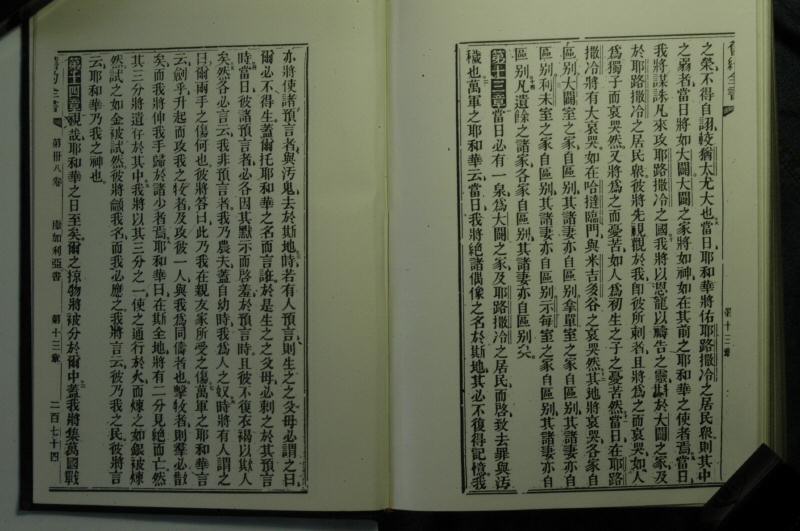 舊約全書
之榮不得自詡較猶太尤大也當日耶和華將佑耶路撒冷之居民衆則其中
之弱者當日將如大闢大闢之家將如神如在其前之耶和華之使者焉當日
我將謀誅凡來攻耶路撒冷之國我將以恩寵以禱告之靈斟於大闢之家及
於耶路撒冷之居民衆彼將先視觀於我即彼所刺者且將為之而哀哭如人
為獨子而哀哭然又將為之而憂苦如人為初生之子之憂苦然當日在耶路
撒冷將有大哀哭如在哈撻臨門與米吉多谷之哀哭然其地將哀哭各家自
區别大闢室之家自區别其諸妻亦自區别拿單室之家自區别其諸妻亦自
區别利未室之家自區别其諸妻亦自區别示每室之家自區别其諸妻亦自
區别凡遺餘之諸家各家自區别其諸妻亦自區别矣
第十三章當日必有一泉為大闢之家及耶路撒冷之居民而啓致去罪與汚
穢也萬軍之耶和華云當日我將絕諸偶像之名於斯地其必不復得記憶我
第十三章
亦將使諸預言者與汚鬼去於斯地時若有人預言則生之之父母必謂之曰
爾必不得生蓋爾托耶和華之名而言誑於是生之之父母必刺之於其預言
時當日彼諸預言者必各因其默示而啓羞於預言時且彼不復衣褐以欺人
矣然各必言云我非預言者我乃農夫蓋自幼時我為人之奴時將有人謂之
曰爾兩手之傷何也彼將答曰此乃我在親友家所受之傷萬軍之耶和華言
云劍乎升起而攻我之牧者及攻彼一人與我為同儔者也擊牧者則羣必散
矣而我將伸我手歸於諸少者焉耶和華曰在斯全地將有二分見絕而亡然
其三分將遺存於其中我將以其三分之一使之通行於火而煉之如銀被煉
然試之如金被試然彼將籲我名而我必應之我將言云彼乃我之民彼將言
云耶和華乃我之神也
第十四章視哉耶和華之日至矣爾之掠物將被分於爾中蓋我將集萬國戰
舊約全書
第卅八卷
撒加利亞書
第十三章
二百七十四